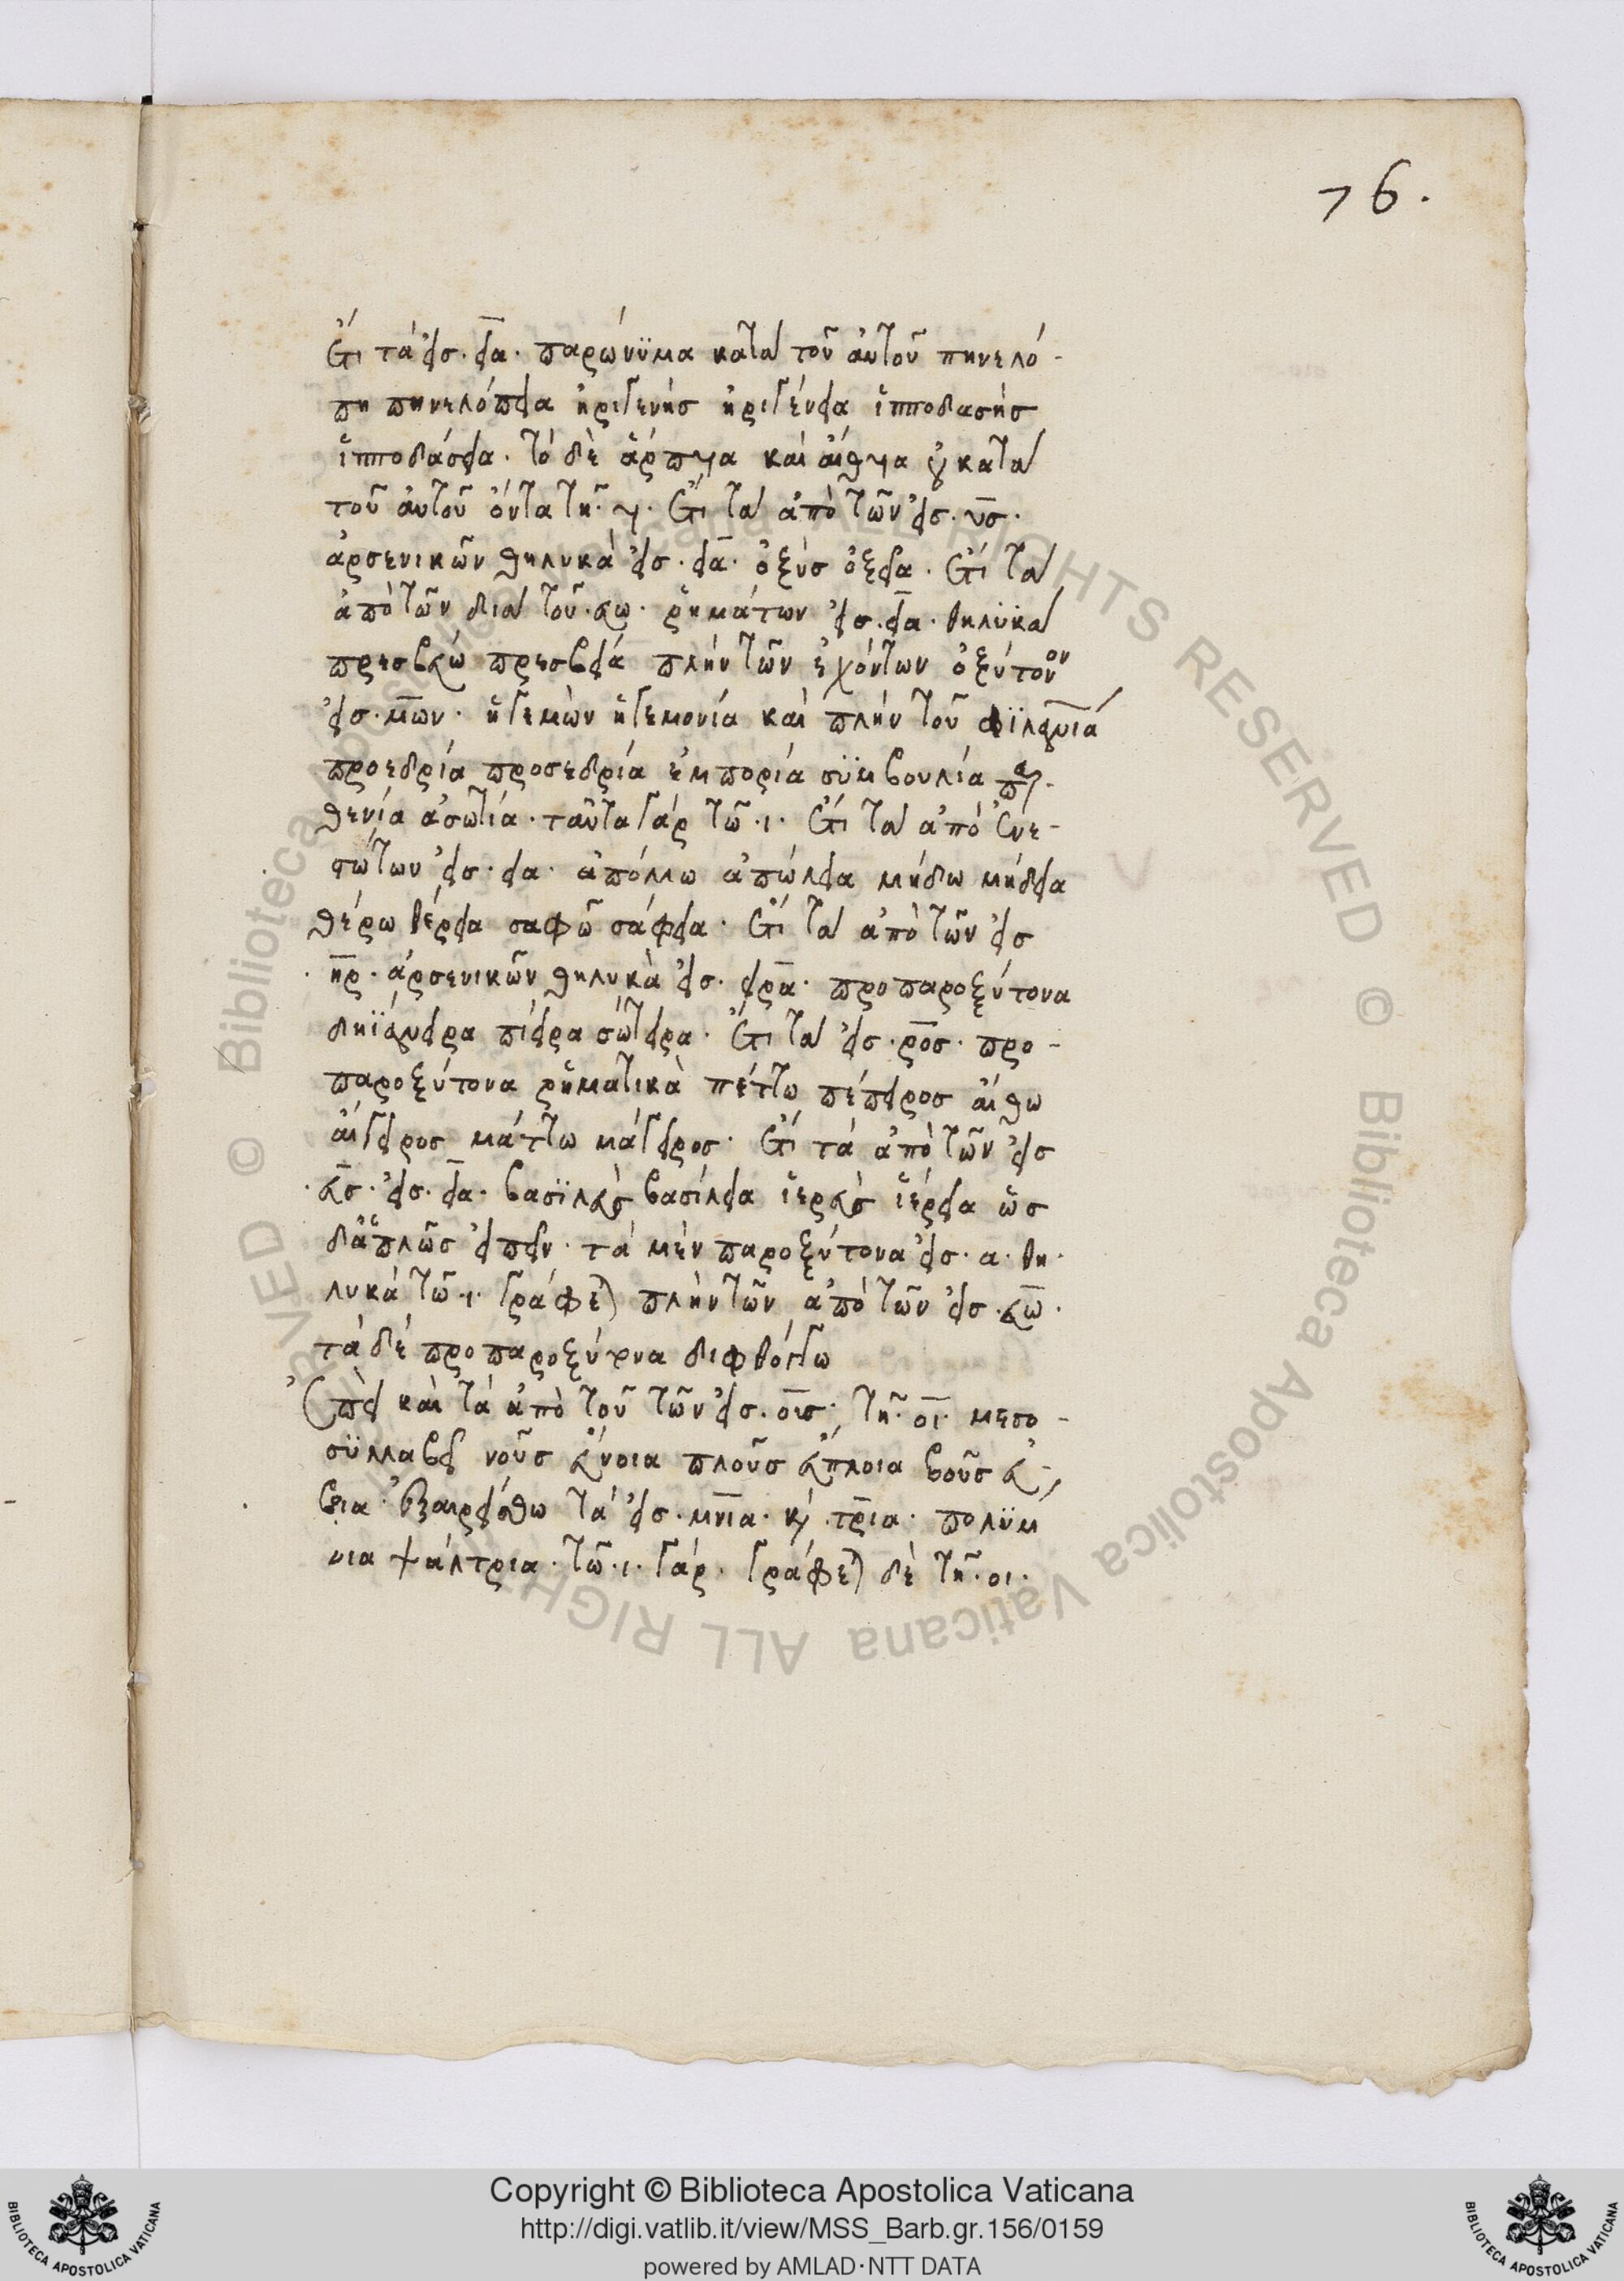 76.
ἔτι τὰ εἰς · εια · παρώνυμα κατὰ τοῦ αὐτοῦ πηνελό-
πη πηνελόπεια ἠριγενὴς ἠριγένεια ἱπποδασὴς
ἱπποδάσεια · τὸ δὲ ἅρπυια καὶ αἴθυια οὐ κατὰ
τοῦ αὐτοῦ ὄντα τῆ · υι · ἔτι τὰ ἀπὸ τῶν εἰς · υς ·
ἀρσενικῶν θηλυκὰ εἰς · εια · ὀξὺς ὀξεῖα · ἔτι τὰ
ἀπὸ τῶν διὰ τοῦ · ευω · ῥημάτων εἰς · εια · θηλυκὰ
πρεσβεύω πρεσβεία πλὴν τῶν ἐχόντων ὀξύτονον
εἰς · μων · ἡγεμὼν ἡγεμονία καὶ πλὴν τοῦ
προεδρία προσεδρία ἐμπορία συμβουλία παρ-
θενία ἀσωτία · ταῦτα γὰρ τῶ · ι · ἔτι τὰ ἀπὸ ἐνε-
στώτων εἰς · εια · ἀπόλλω ἀπώλεια μήδω μήδεια
θέρω θέρεια σαφῶ σάφεια · ἔτι τὰ ἀπὸ τῶν εἰς
· ηρ · ἀρσενικῶν θηλυκὰ εἰς · ειρα · προπαροξύτονα
δηϊάνειρα πίειρα σώτειρα · ἔτι τὰ εἰς · ρος · προ-
παροξύτονα ῥηματικὰ πέττω πέπειρος αἴθω
αἴγειρος μάττω μάγειρος · ἔτι τὰ ἀπὸ τῶν εἰς
· ευς · εἰς · εια · βασιλεὺς βασίλεια ἱερεὺς ἱέρεια ὡς
δὲ ἁπλῶς εἰπεῖν · τὰ μὲν παροξύτονα εἰς · α · θη-
λυκὰ τῶ · ι · γράφεται πλὴν τῶν ἀπὸ τῶν εἰς · ευω ·
τὰ δὲ προπαροξύτονα διφθόγγω
ἐπεὶ καὶ τὰ ἀπὸ τοῦ τῶν εἰς · οις · τῆ · οι · μεσο-
συλλαβεῖ νοῦς εὔνοια πλοῦς εὔπλοια βοῦς εὔ-
βοια · ἐξαιρείσθω τὰ εἰς · μνια · καὶ · τρια · πολύμ
νια ψάλτρια · τῶ · ι · γὰρ · γράφεται δὲ τῆ · οι ·
© Biblioteca Apostolica Vaticana ALL RIGHTS RESERVED
Copyright © Biblioteca Apostolica Vaticana
http://digi.vatlib.it/view/MSS_Barb.gr.156/0159
powered by AMLAD·NTT DATA
BIBLIOTECA APOSTOLICA VATICANA
BIBLIOTECA APOSTOLICA VATICANA